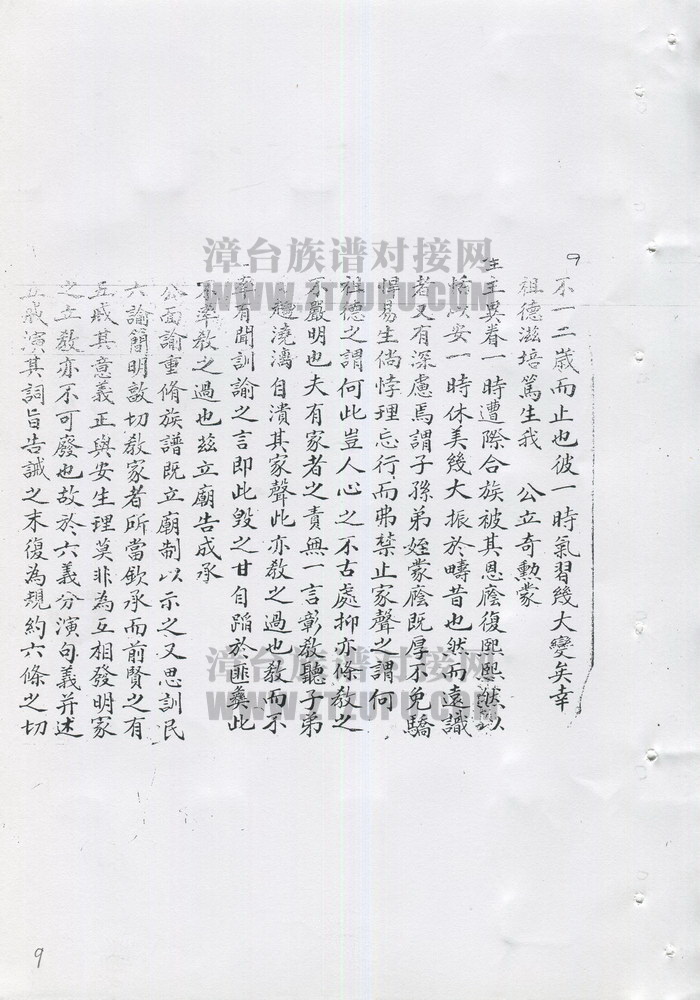 9
不一二歲而止也彼一時氣習幾大變矣幸
祖德滋培篤生我 公立奇勳蒙
主異眷一時遭際合族被其恩廕復熙熙然以
恬以安一時休美幾大振於疇昔也然而遠識
者又有深慮焉謂子孫弟姪蒙廕既厚不免驕
悍易生倘悖理忘行而弗禁止家聲之謂何
祖德之謂何此豈人心之不古處抑亦條教之
不嚴明也夫有家者之責無一言彰教聽子弟
趨澆漓自潰其家聲此亦教之過也教而不
率有聞訓諭之言即此毀之甘自蹈於匪彝此
不率教之過也茲立廟告成承
公面諭重脩族譜既立廟制以示之又思訓民
六諭簡明敦切教家者所當欽承而前賢之有
五戒其意義正與安生理莫非為互相發明家
之立教亦不可廢也故於六義分演句義并述
五戒演其詞旨告誡之末復為規約六條之切
漳台族谱对接网
WWW.ZTZUPU.COM
漳台族谱对接网
WWW.ZTZUPU.COM
9